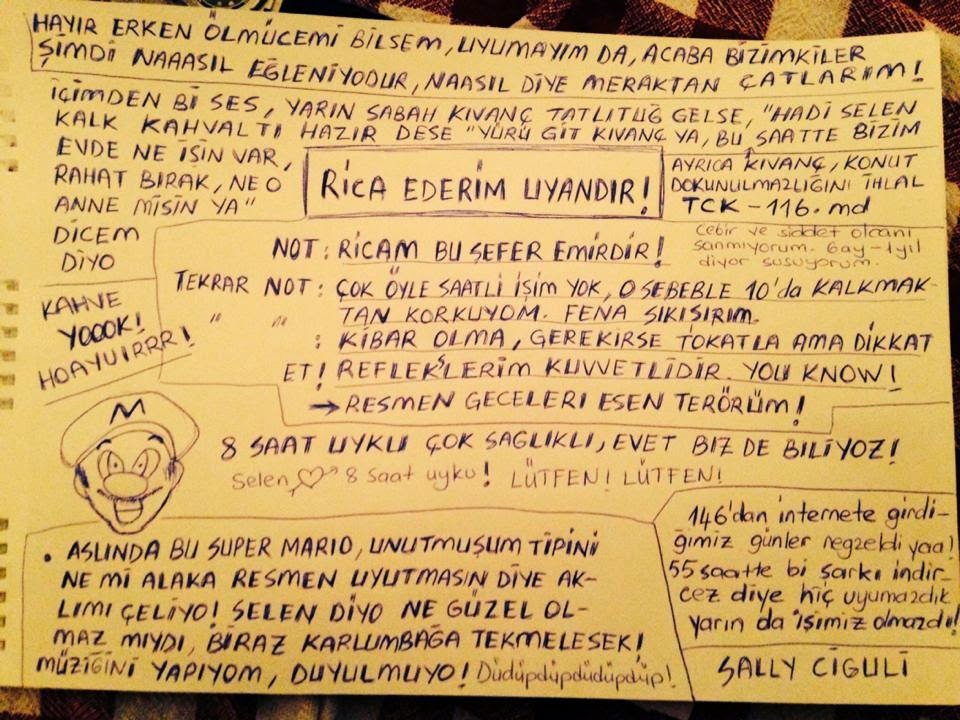 HAYIR ERKEN ÖLMÜCEMİ BİLSEM, UYUMAYIM DA, ACABA BİZİMKİLER
ŞİMDİ NAAASIL EĞLENİYODUR, NAASIL DİYE MERAKTAN ÇATLARIM!
İÇİMDEN Bİ SES, YARIN SABAH KIVANÇ TATLITUĞ GELSE, "HADİ SELEN
KALK KAHVALTI HAZIR DESE "YÜRÜ GİT KIVANÇ YA, BU SAATTE BİZİM
EVDE NE İŞİN VAR,
RAHAT BIRAK, NE O
ANNE MİSİN YA"
DİCEM
DİYO
RİCA EDERİM UYANDIR!
AYRICA KIVANÇ, KONUT
DOKUNULMAZLIĞINI İHLAL
TCK - 116. md
Cebir ve şiddet olcanı
sanmıyorum. 6ay - 1yıl
diyor susuyorum.
NOT: RİCAM BU SEFER EMİRDİR!
TEKRAR NOT: ÇOK ÖYLE SAATLİ İŞİM YOK, O SEBEBLE 10'da KALKMAK-
" " TAN KORKUYOM. FENA SIKIŞIRIM.
: KİBAR OLMA, GEREKİRSE TOKATLA AMA DİKKAT
ET! REFLEKSLERİM KUVVETLİDİR. YOU KNOW!
→ RESMEN GECELERİ ESEN TERÖRÜM!
KAHVE
YOOOK!
HOAYUIRRR!
M
8 SAAT UYKU ÇOK SAĞLIKLI, EVET BİZ DE BİLİYOZ!
Selen ♡ 8 saat uyku! LÜTFEN! LÜTFEN!
• ASLINDA BU SUPER MARIO, UNUTMUŞUM TİPİNİ
NE Mİ ALAKA RESMEN UYUTMASIN DİYE AK-
LIMI ÇELİYO! SELEN DİYO NE GÜZEL OL-
MAZ MIYDI, BİRAZ KARLUMBAĞA TEKMELESEK!
MÜZİĞİNİ YAPIYOM, DUYULMUYO! Düdüpdüpdüdüpdüp!
146'dan internete girdi-
ğimiz günler negzeldi yaa!
55 saatte bi şarkı indir-
cez diye hiç uyumazdık
yarın da işimiz olmazdı!
SALLY CİGULİ